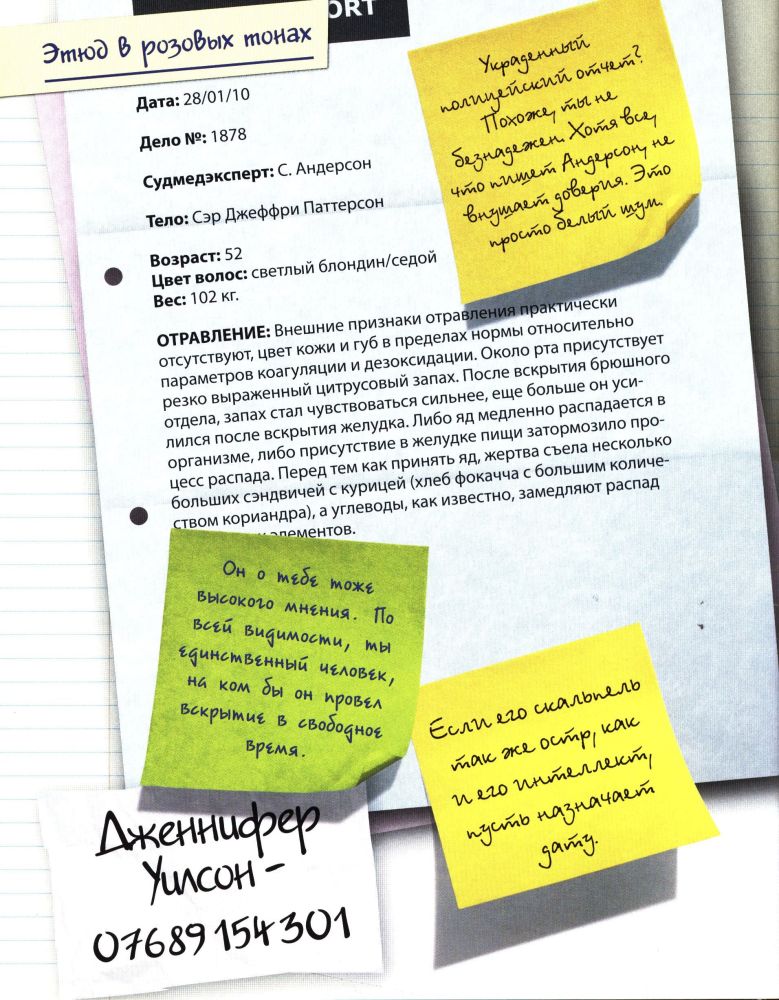 ORT
Этюд в розовых тонах
Дата: 28/01/10
Дело №: 1878
Судмедэксперт: С. Андерсон
Тело: Сэр Джеффри Паттерсон
Возраст: 52
Цвет волос: светлый блондин/седой
Вес: 102 кг.
Украденный
полицейский отчет?
Похоже, ты не
безнадежен. Хотя все,
что пишет Андерсон, не
внушает доверия. Это
просто белый шум.
ОТРАВЛЕНИЕ: Внешние признаки отравления практически
отсутствуют, цвет кожи и губ в пределах нормы относительно
параметров коагуляции и дезоксидации. Около рта присутствует
резко выраженный цитрусовый запах. После вскрытия брюшного
отдела, запах стал чувствоваться сильнее, еще больше он уси-
лился после вскрытия желудка. Либо яд медленно распадается в
организме, либо присутствие в желудке пищи затормозило про-
цесс распада. Перед тем как принять яд, жертва съела несколько
больших сэндвичей с курицей (хлеб фокачча с большим количе-
ством кориандра), а углеводы, как известно, замедляют распад
элементов.
Он о тебе тоже
высокого мнения. По
всей видимости, ты
единственный человек,
на ком бы он провел
вскрытие в свободное
время.
Если его скальпель
так же остр, как
и его интеллект,
пусть назначает
дату.
Дженнифер
Уилсон -
07689 154301